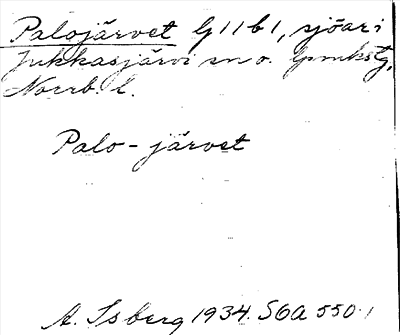 Palojärvet G 11 b 1, sjöar i
Jukkasjärvi sn o. lpmkstg,
Norrb. l.
Palo - järvet
A. Isberg 1934. S6A 550.